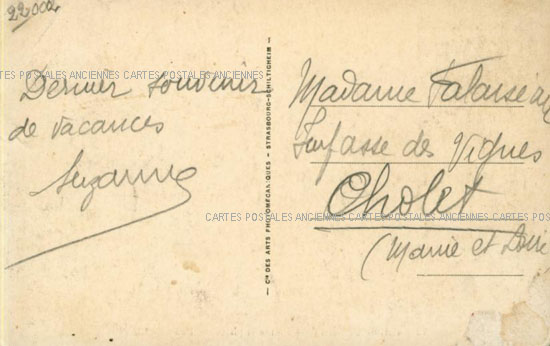 22002
Dernier souvenir
de vacances
Suzanne
CARTES POSTALES ANCIENNES CARTES POSTALES ANCIENNES
Cie DES ARTS PHOTOMÉCANIQUES - STRASBOURG-SCHILTIGHEIM
Madame
des Vignes
Cholet
(Maine et Loire
CARTES POSTALES ANCIENNES CARTES POSTALES ANCIENNES